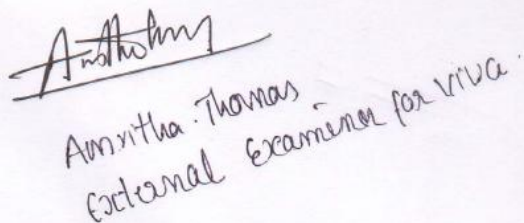 Amritha. Thomas
External Examiner for viva.